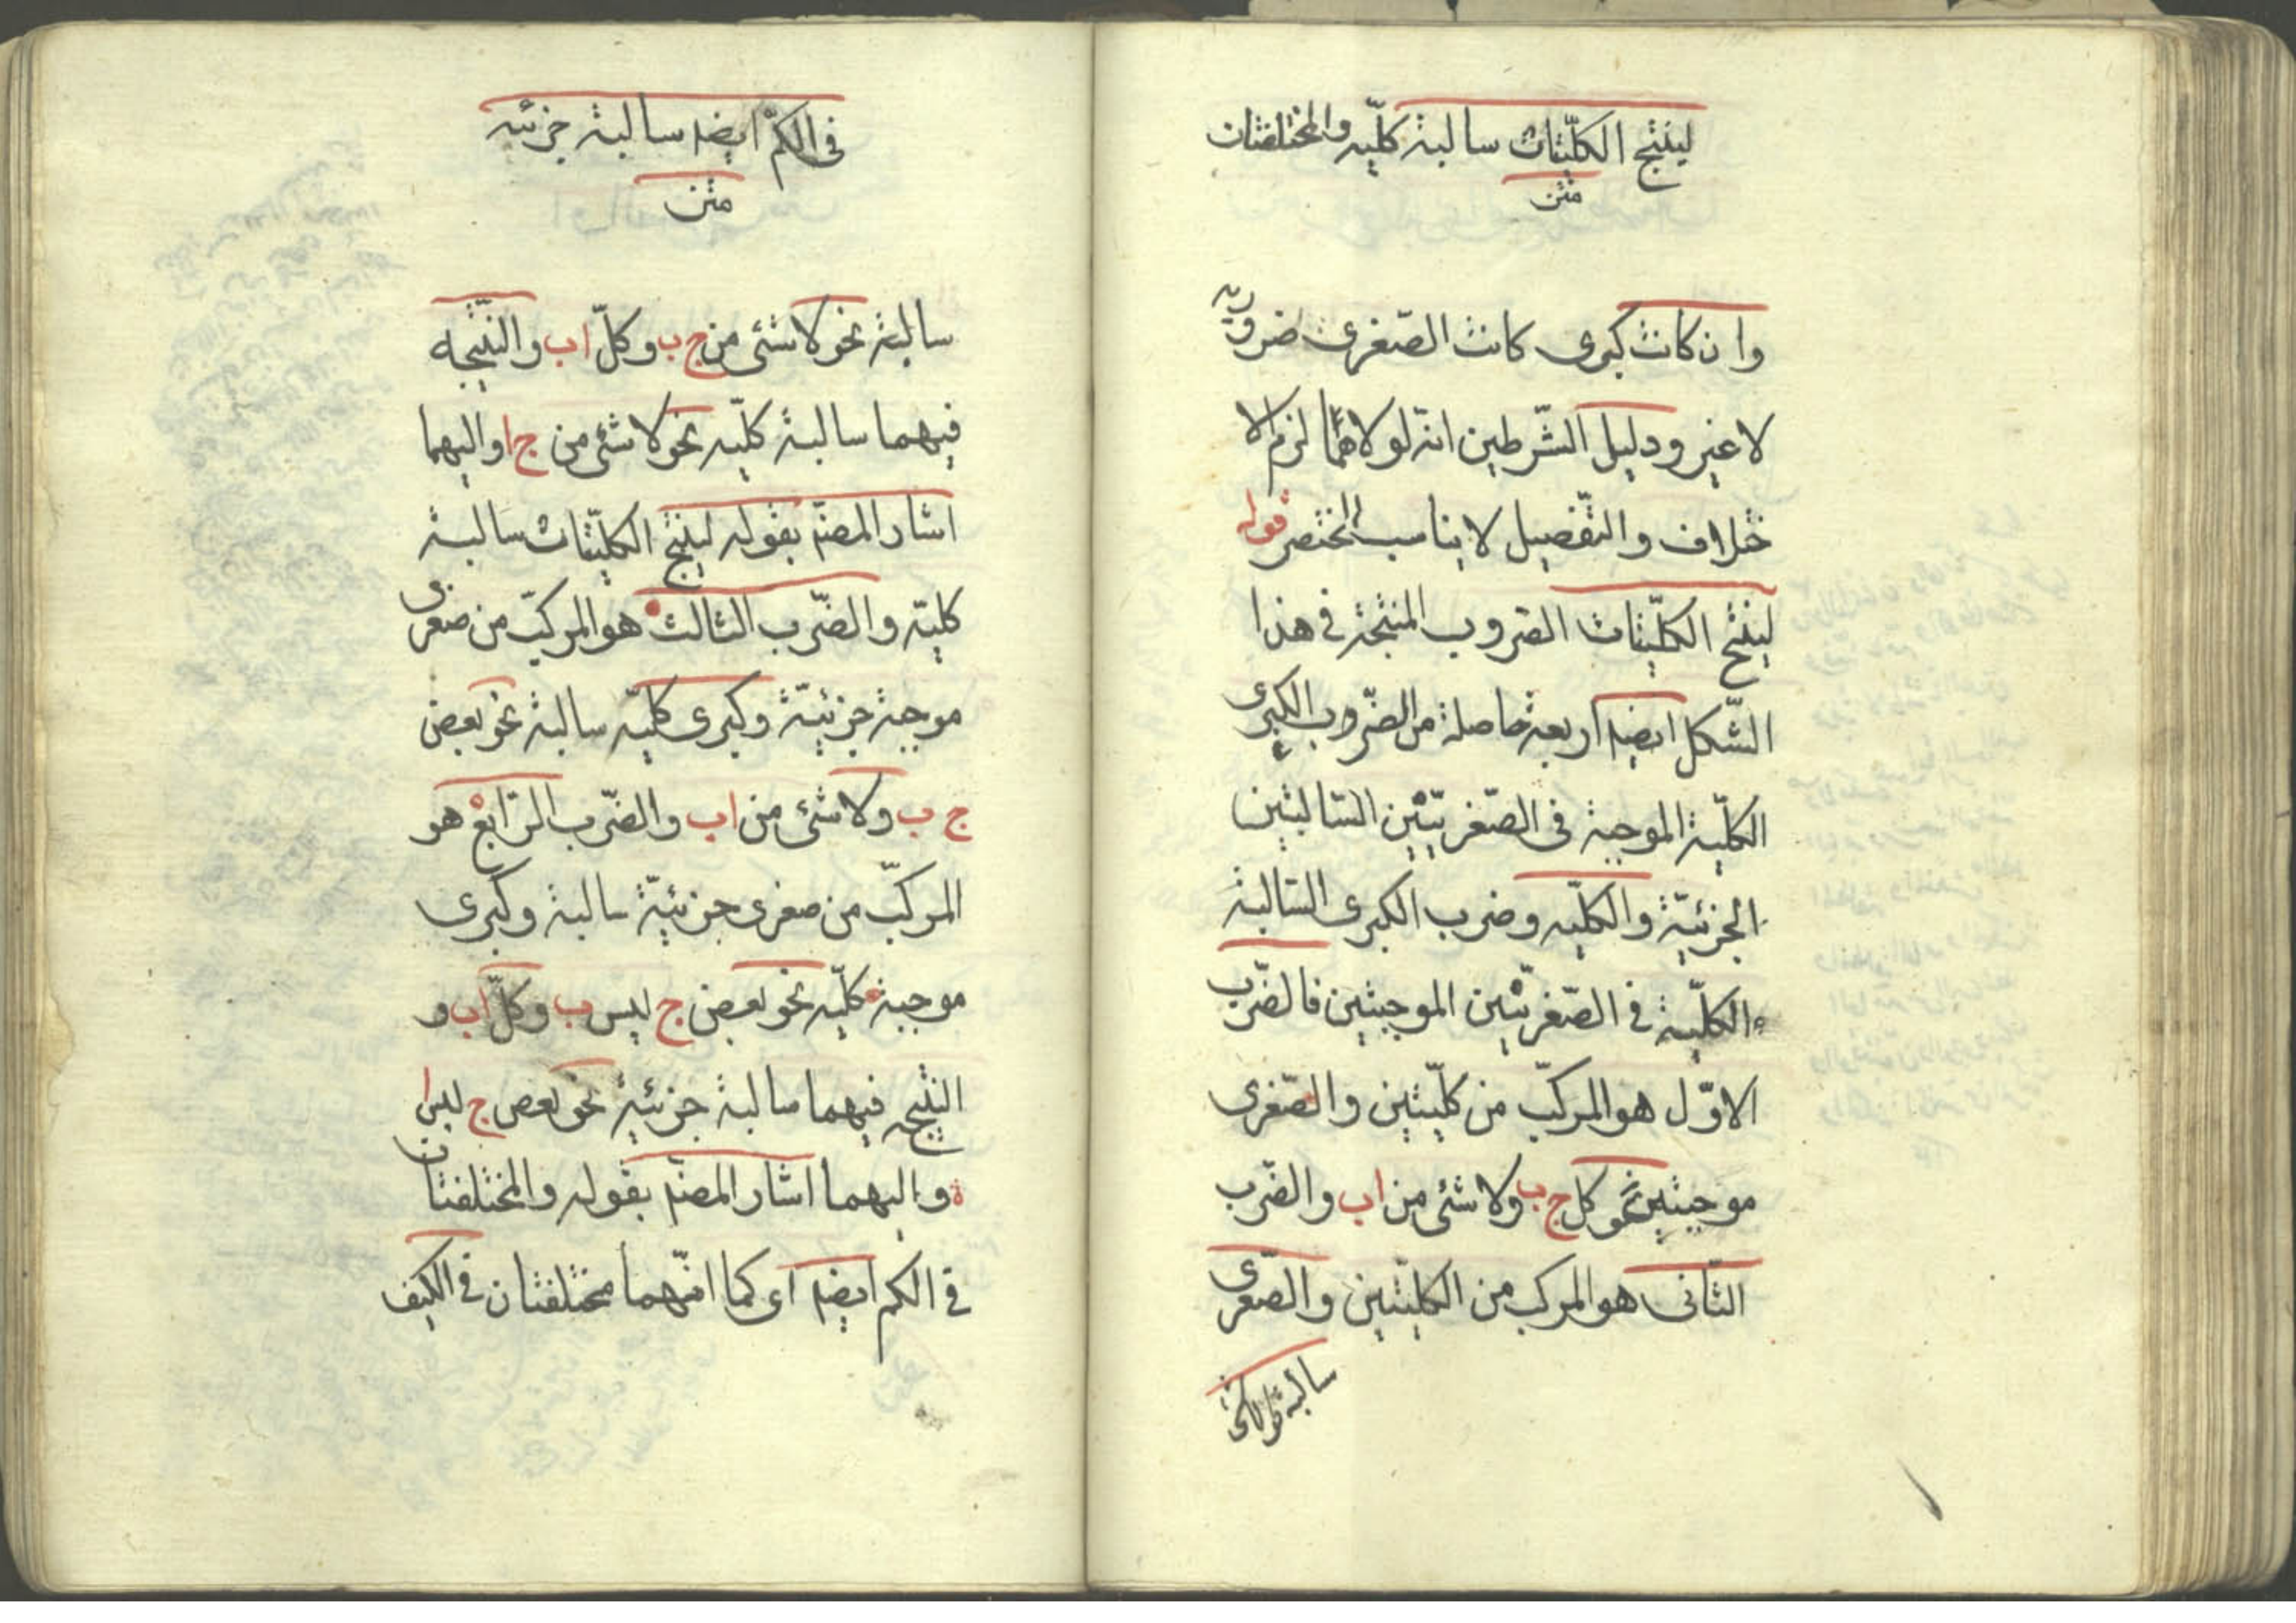 لينتج الكلّيتان سالبة كلّيه والمختلفتان
متن
وان كانت كبرى كانت الصّغرى ضروريّه
لا غير ودليل الشّرطين انّه لولاهما لزم الا
ختلاف والتّفصيل لا يناسب المختصر قوله
لينتج الكلّيتان الضروب المنتجة فى هذا
الشّكل ايضا اربعة حاصلة من الضّروب الكبرى
الكلّية الموجبة فى الصّغريتين السّالبتين
الجزئيّة والكلّيه وضرب الكبرى السّالبة
الكلّية فى الصّغريّتين الموجبتين فالضّرب
الاوّل هو المركّب من كلّيتين والصّغرى
موجبتين نحو كل ج ب ولا شئ من ا ب والضّرب
الثّانى هو المركب من الكليّتين والصّغرى
سالبة
فى الكم ايضا سالبة جزئيه
متن
سالبة نحو لا شئ من ج ب وكلّ ا ب والنّتيجه
فيهما سالبة كلّيه نحو لا شئ من ج ا واليهما
اشار المصنّ بقوله لينتج الكلّيتان سالبة
كليّه والضّرب الثالث هو المركّب من صغرى
موجبة جزئيّة وكبرى كليّه سالبة نحو بعض
ج ب ولا شئ من ا ب والضّرب الرّابع هو
المركّب من صغرى جزئيّة سالبة وكبرى
موجبة كلّيه نحو بعض ج ليس ب وكلّ ا ب و
النتيجه فيهما سالبة جزئية نحو بعض ج ليس ا
واليهما اشار المصنّ بقوله والمختلفتان
فى الكم ايضا اى كما انّهما مختلفتان فى الكيف